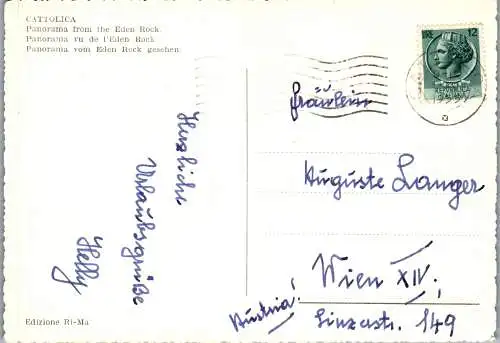 CATTOLICA
Panorama from the Eden Rock.
Panorama vu de l'Eden Rock.
Panorama vom Eden Rock gesehen.
Herzliche
Urlaubsgrüße
Helly
Edizione Ri-Ma
12
Fräulein
Auguste Langer
Wien XIV.
Linzastr. 149
Austria!